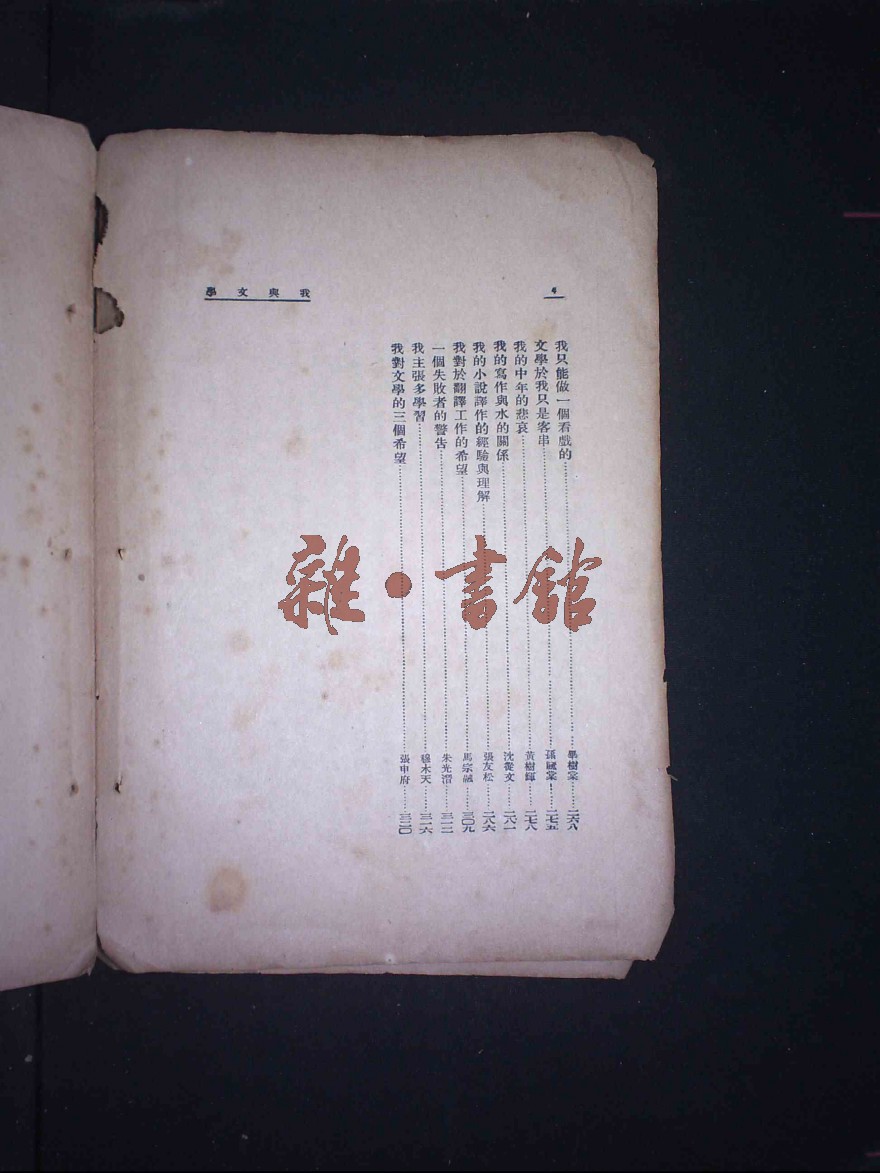 4
我與文學
我只能做一個看戲的……畢樹棠……二六八
文學於我只是客串……孫國棠……二七五
我的中年的悲哀……黃樹輝……二七八
我的寫作與水的關係……沈從文……二八一
我的小說譯作的經驗與理解……張友松……二八六
我對於翻譯工作的希望……馬宗融……三〇九
一個失敗者的警告……朱光潛……三一二
我主張多學習……穆木天……三一六
我對文學的三個希望……張申府……三二〇
雜·書館